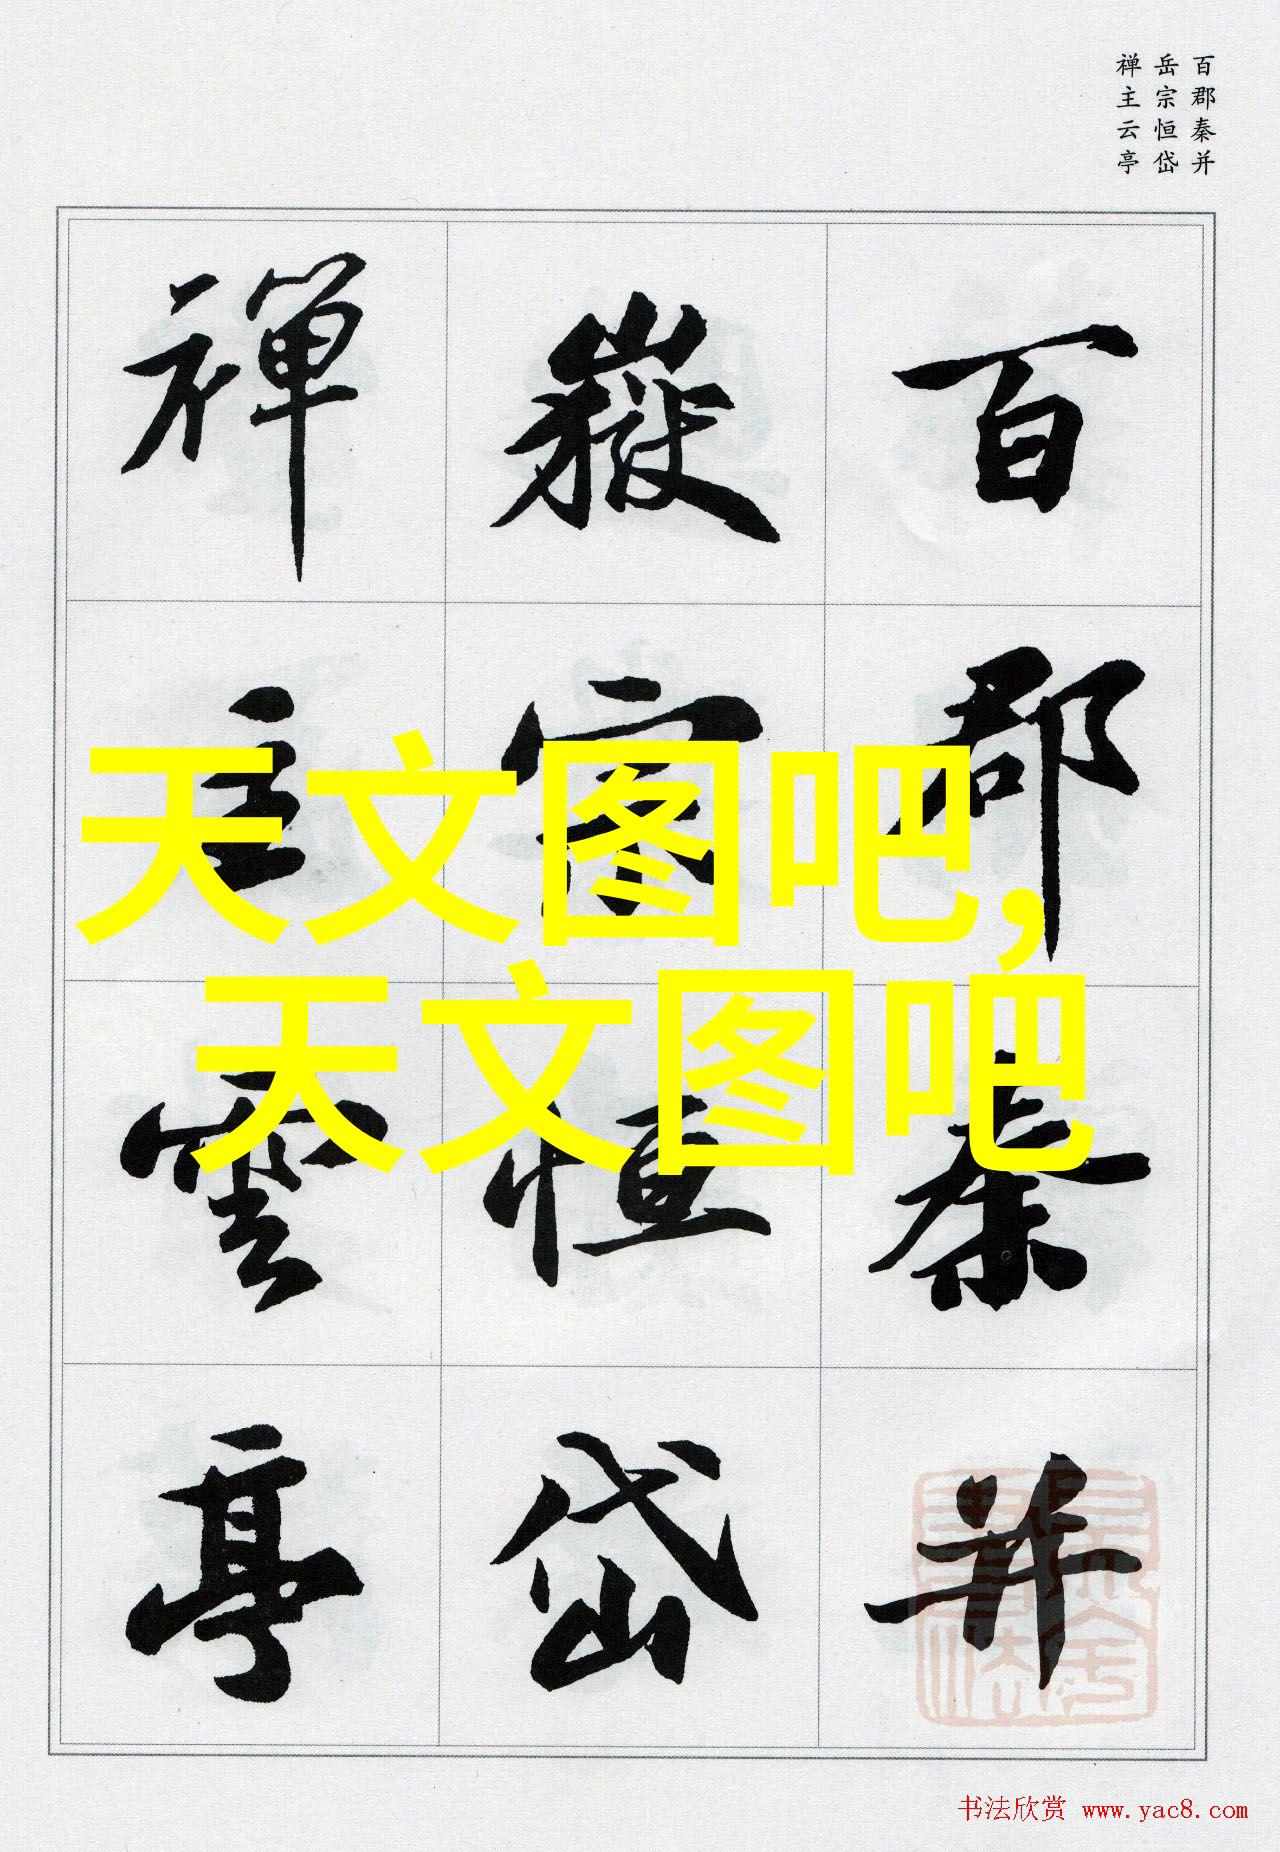 百郡秦并
岳宗恒岱
禅主云亭
百郡秦并
嶽宗恒岱
禪主雲亭
天文图吧，
天文图吧
书法欣赏 www.yac8.com